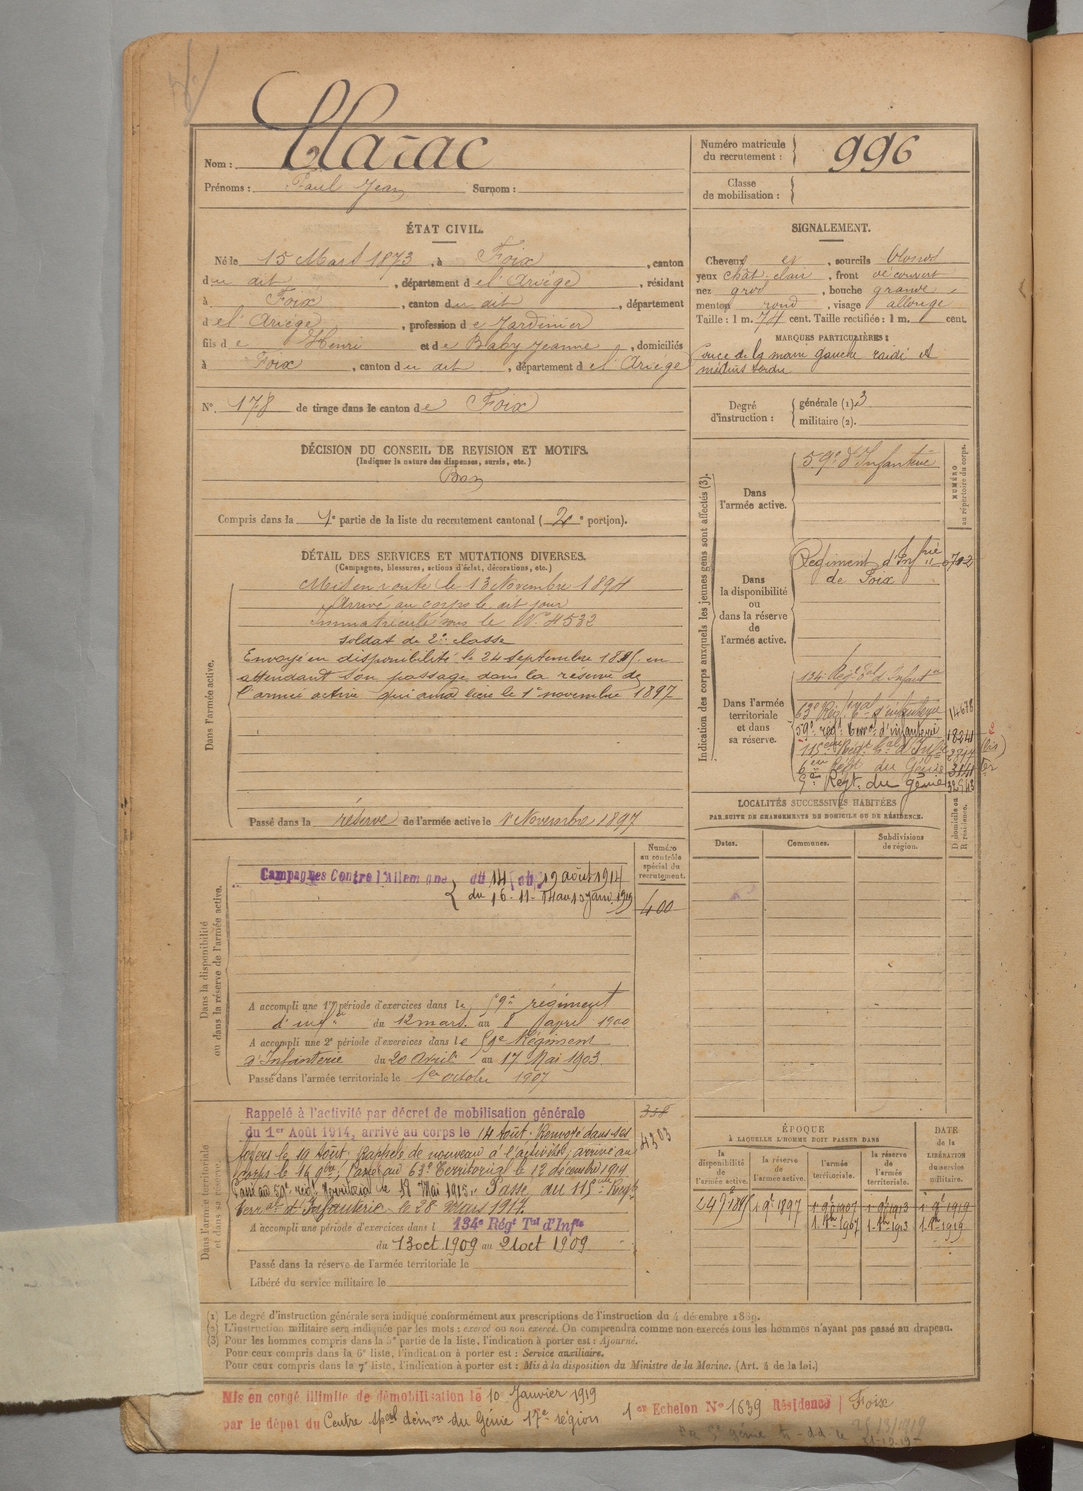 Nom : Clarac
Prénoms : Paul Jean Surnom :
Numéro matricule du recrutement : 996
Classe de mobilisation :
ÉTAT CIVIL.
Né le 15 Mars 1873, à Foix, canton
du dit, département de l'Ariège, résidant
à Foix, canton du dit, département
de l'Ariège, profession de Jardinier
fils de Henri et de Baby Jeanne, domiciliés
à Foix, canton du dit, département de l'Ariège
N° 178 de tirage dans le canton de Foix
SIGNALEMENT.
Cheveux et, sourcils blonds
yeux chât. clair, front découvert
nez gros, bouche grande,
menton rond, visage allongé
Taille : 1 m. 74 cent. Taille rectifiée : 1 m. cent.
MARQUES PARTICULIÈRES :
Pouce de la main gauche raidi et
Degré d'instruction : générale (1) 3
militaire (2).
DÉCISION DU CONSEIL DE REVISION ET MOTIFS.
(Indiquer la nature des dispenses, sursis, etc.)
Bon
Compris dans la 1e partie de la liste du recrutement cantonal (2e portion).
DÉTAIL DES SERVICES ET MUTATIONS DIVERSES.
(Campagnes, blessures, actions d'éclat, décorations, etc.)
Dans l'armée active.
Mis en route le 13 Novembre 1894
Arrivé au corps le dit jour
Immatriculé sous le N° 4532
soldat de 2e classe
Envoyé en disponibilité le 24 septembre 1895 en
attendant son passage dans la réserve de
l'armée active qui aura lieu le 1er novembre 1897
Passé dans la réserve de l'armée active le 1 Novembre 1897
Indication des corps auxquels les jeunes gens sont affectés (3).
NUMÉRO au répertoire du corps.
Dans l'armée active.
59e d'Infanterie
Dans la disponibilité ou dans la réserve de l'armée active.
Régiment d'Infrie 0702
de Foix
Dans l'armée territoriale et dans sa réserve.
134 Régt Tal d'Infante
63e Rég. tal d'infanterie 14678
59e régt Terral d'infanterie 18241
115ème Régt Tal d'Infie
6ème Régt du Génie
9e Regt. du génie
LOCALITÉS SUCCESSIVES HABITÉES
PAR SUITE DE CHANGEMENTS DE DOMICILE OU DE RÉSIDENCE.
D. domicile ou R. résidence.
Dates. Communes. Subdivisions de région.
Dans la disponibilité ou dans la réserve de l'armée active.
Numéro au contrôle spécial du recrutement.
Campagnes Contre l'Allemagne du 14 au 19 août 1914
du 16-11-14 au 10 janv. 1919
400
A accompli une 1re période d'exercices dans le 59e régiment
d'infie du 12 mars au 8 avril 1900
A accompli une 2e période d'exercices dans le 59e Régiment
d'Infanterie du 20 Avril au 17 Mai 1903
Passé dans l'armée territoriale le 1er octobre 1907
Dans l'armée territoriale et dans sa réserve.
Rappelé à l'activité par décret de mobilisation générale
du 1er Août 1914, arrivé au corps le 14 Août. Renvoyé dans ses
foyers le 19 Août. Rappelé de nouveau à l'activité, arrivé au
corps le 16 9bre. Passé au 63e Territorial le 12 décembre 1914
Passé au 59e régt Territorial le 18 Mai 1915. Passé au 115eme Regt
Terral d'Infanterie le 28 mars 1917.
4303
A accompli une période d'exercices dans l 134e Régt Tal d'Infie
du 13 oct 1909 au 21 oct 1909
Passé dans la réserve de l'armée territoriale le
Libéré du service militaire le
ÉPOQUE
À LAQUELLE L'HOMME DOIT PASSER DANS
DATE de la LIBÉRATION du service militaire.
la disponibilité de l'armée active. la réserve de l'armée active. l'armée territoriale. la réserve de l'armée territoriale.
24 9e 1895 1 9e 1897 1 9e 1907 1 9e 1913 1 9e 1919
1 8bre 1907 1-8bre 1913 1-8bre 1919
(1) Le degré d'instruction générale sera indiqué conformément aux prescriptions de l'instruction du 4 décembre 1889.
(2) L'instruction militaire sera indiquée par les mots : exercé ou non exercé. On comprendra comme non exercés tous les hommes n'ayant pas passé au drapeau.
(3) Pour les hommes compris dans la 5e partie de la liste, l'indication à porter est : Ajourné.
Pour ceux compris dans la 6e liste, l'indication à porter est : Service auxiliaire.
Pour ceux compris dans le 7e liste, l'indication à porter est : Mis à la disposition du Ministre de la Marine. (Art. 4 de la loi.)
Mis en congé illimité de démobilisation le 10 Janvier 1919
par le dépôt du Centre spal démon du Génie 17e région 1er Echelon N° 1639 Résidence Foix